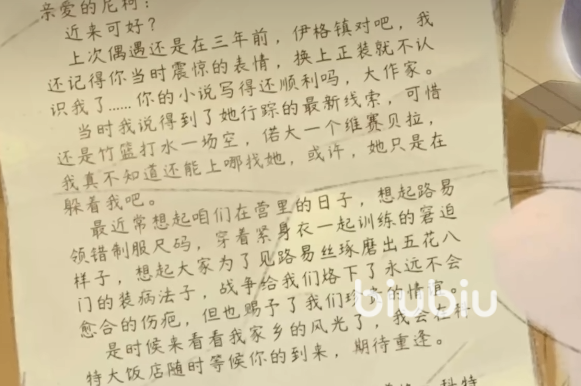 亲爱的尼柯：
近来可好？
上次偶遇还是在三年前，伊格镇对吧，我
还记得你当时震惊的表情，换上正装就不认
识我了……你的小说写得还顺利吗，大作家。
当时我说得到了她行踪的最新线索，可惜
还是竹篮打水一场空，偌大一个维赛贝拉，
我真不知道还能上哪找她，或许，她只是在
躲着我吧。
最近常想起咱们在营里的日子，想起路易
领错制服尺码，穿着紧身衣一起训练的窘迫
样子，想起大家为了见路易丝琢磨出五花八
门的装病法子，战争给我们烙下了永远不会
愈合的伤疤，但也赐予了我们珍贵的情谊。
是时候来看看我家乡的风光了，我会在科
特大饭店随时等候你的到来，期待重逢。
科特
biubiu